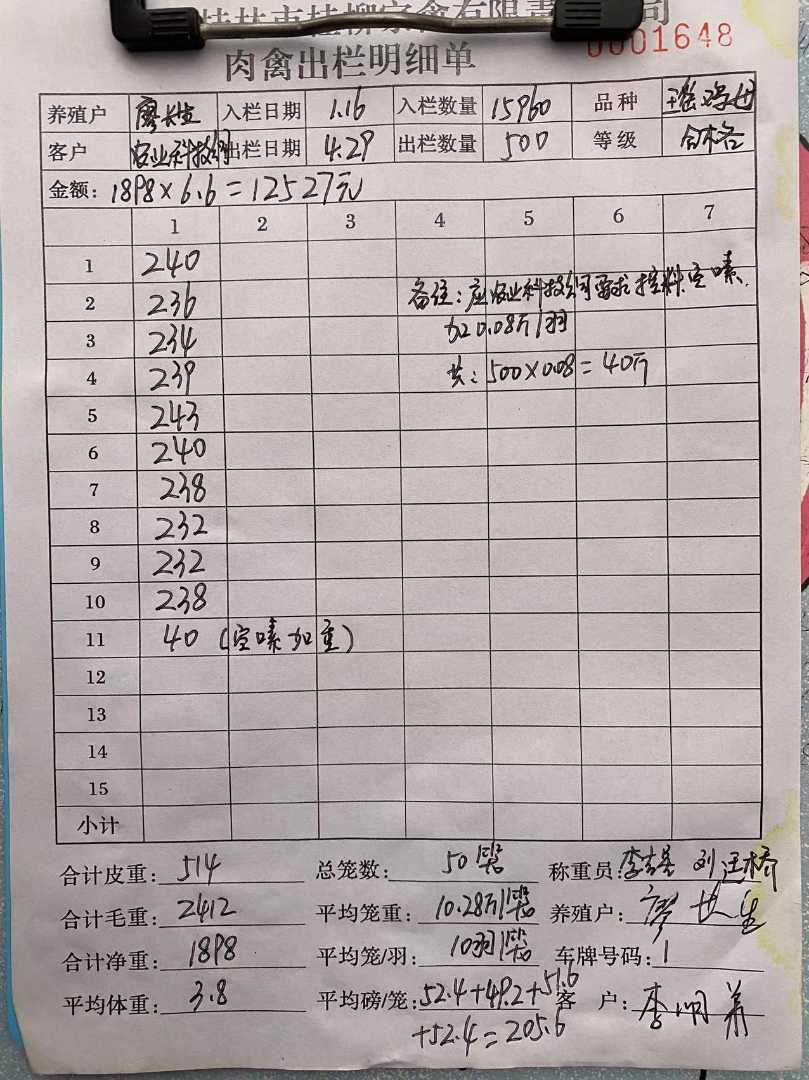 桂林市桂柳家禽有限责任公司
0001648
肉禽出栏明细单
养殖户 廖长生 入栏日期 1.16 入栏数量 15960 品种 瑶鸡母
客户 农业科技公司 出栏日期 4.29 出栏数量 500 等级 合格
金额: 1898×6.6=12527元
1 2 3 4 5 6 7
1 240
2 236
3 234
4 239
5 243
6 240
7 238
8 232
9 232
10 238
11 40 (空嗉加重)
12
13
14
15
小计
备注:应农业科技公司要求控料空嗉.
加0.08斤/羽
共:500×0.08=40斤
合计皮重: 514 总笼数: 50 称重员: 李 刘
合计毛重: 2412 平均笼重: 10.28斤/ 养殖户: 廖长生
合计净重: 1898 平均笼/羽: 10羽/ 车牌号码: 1
平均体重: 3.8 平均磅/笼: 52.4+49.2+51.6 客 户: 李
+52.4=205.6